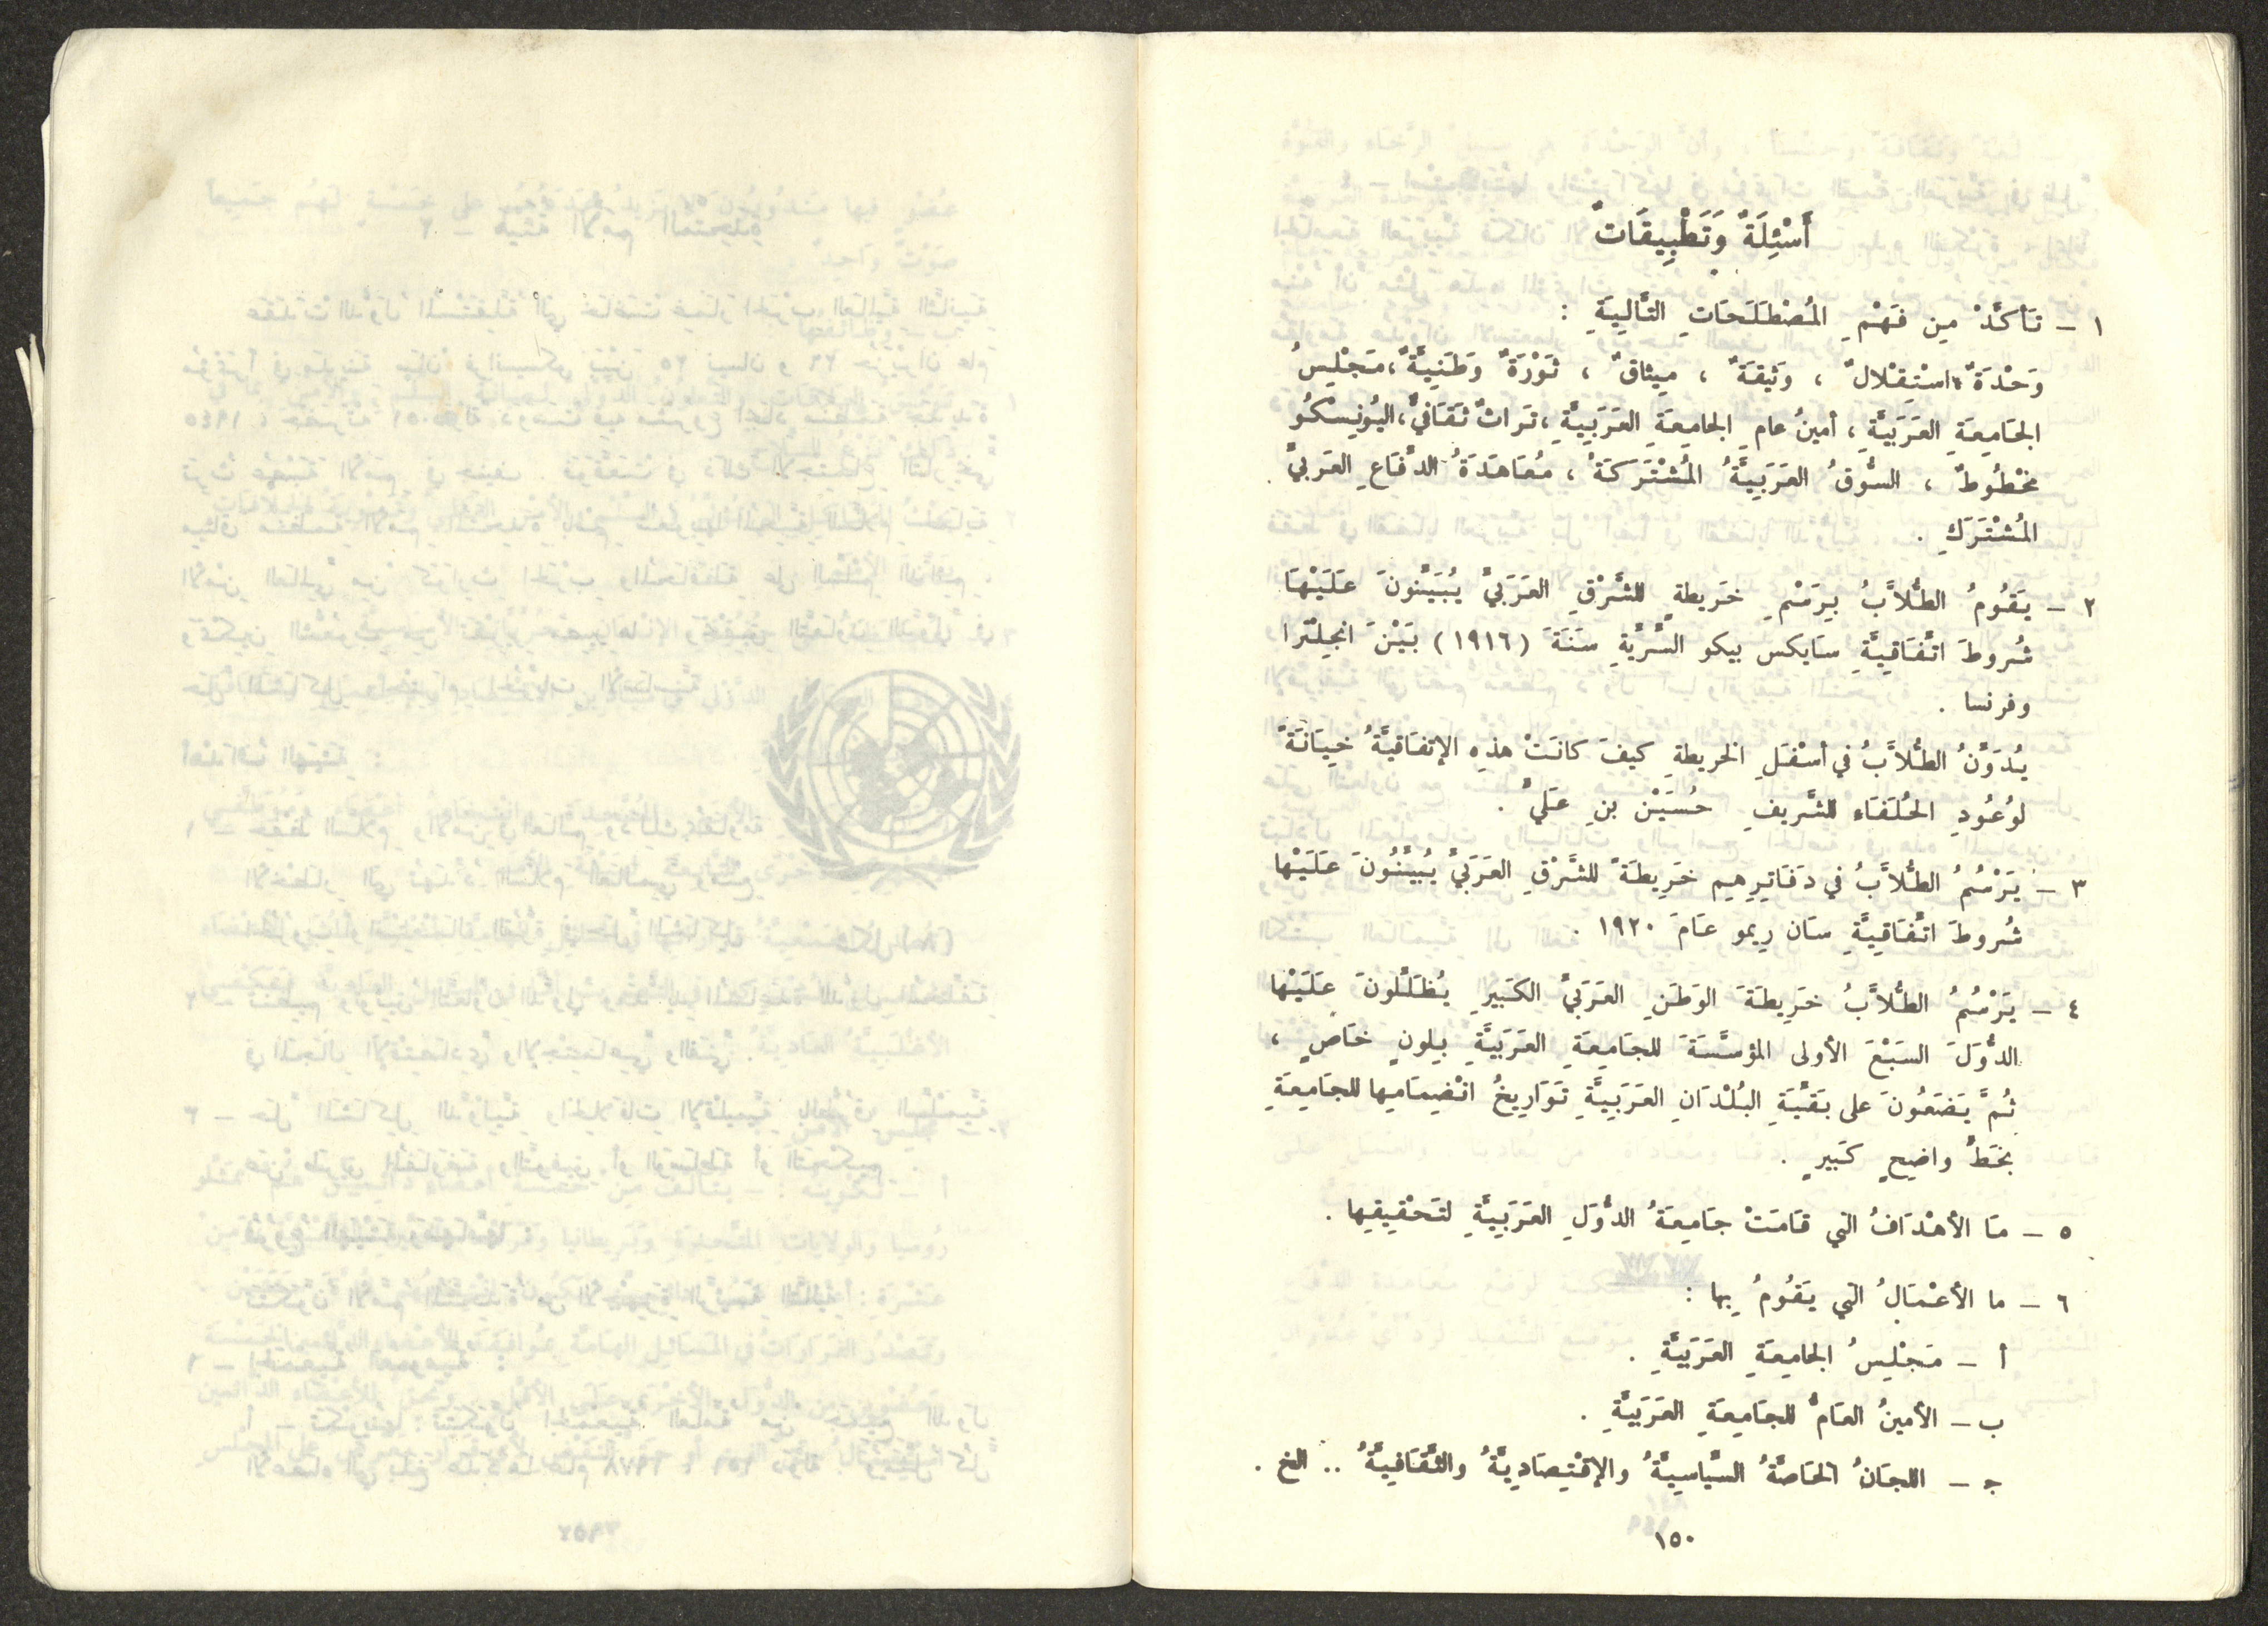 أَسْئِلَةٌ وَتَطْبِيقَاتٌ
١ – تَأَكَّدْ مِن فَهْمِ المُصْطَلَحَاتِ التَّالِيَةِ :
وَحْدَةٌ، اسْتِقْلالٌ ، وَثيقَةٌ ، مِيثاقٌ ، ثَوْرَةٌ وَطَنِيَّةٌ، مَجْلِسُ
الجَامِعَةِ العَرَبيَّةِ ، أمينُ عامِ الجامِعَةِ العَرَبِيَّةِ ، تَراثٌ ثَقَافيٌّ، اليُونِسْكُو
مَخْطُوطٌ ، السُّوقُ العَرَبِيَّةُ المُشْتَرَكَةُ ، مُعَاهَدَةُ الدِّفَاعِ العَرَبيِّ
المُشْتَرَكِ .
٢ – يَقُومُ الطُّلاَّبُ بِرَسْمِ خَريطةٍ للشَّرْقِ العَرَبيِّ يُبَيِّنُونَ عَلَيْهَا
شُروطَ اتِّفَاقيَّةِ سَايكس بيكو السِّرِّيَّةِ سَنَةَ (١٩١٦) بَيْنَ انجِلْترا
وفرنسا .
يُدَوِّنُ الطُّلاَّبُ في أسْفَلِ الخريطةِ كيفَ كانَتْ هذِه الإتفَاقيَّةُ خِيَانَةً
لوُعُودِ الحُلَفَاء للشَّريفِ حُسَيْن بنِ عَليٍّ .
٣ – يَرْسُمُ الطُّلاَّبُ في دَفَاتِرِهِم خَرِيطَةً للشَّرْقِ العَرَبيِّ يُبيِّنُونَ عَلَيْها
شُروطَ اتِّفَاقِيَّةِ سَان رِيمو عَامَ ١٩٢٠ .
٤ – يَرْسُمُ الطُّلاَّبُ خَرِيطَةَ الوَطَنِ العَرَبيِّ الكَبيرِ يُظَلِّلُونَ عَلَيْها
الدُّوَلَ السَبْعَ الأولى المؤسِّسَةَ للجَامِعَةِ العَرَبيَّةِ بِلونٍ خَاصٍّ ،
ثُمَّ يَضَعُونَ على بَقيَّةِ البُلْدَانِ العَرَبِيَّةِ تَوَارِيخُ انْضِمَامِها للجَامِعَةِ
بخَطٍّ واضِحٍ كَبيرٍ .
٥ – مَا الأهْدَافُ التي قَامَتْ جَامِعَةُ الدُّوَلِ العَرَبِيَّةِ لتَحْقِيقِها .
٦ – ما الأعْمَالُ التي يَقُومُ بِها :
أ – مَجْلِسُ الجامِعَةِ العَرَبيَّةِ .
ب – الأمينُ العَامُّ للجَامِعَةِ العَرَبيَّةِ .
جـ – اللجَانُ الخَاصَّةُ السِّيَاسِيَّةُ والإقْتِصَادِيَّةُ والثَّقَافيَّةُ .. الخ .
١٥٠